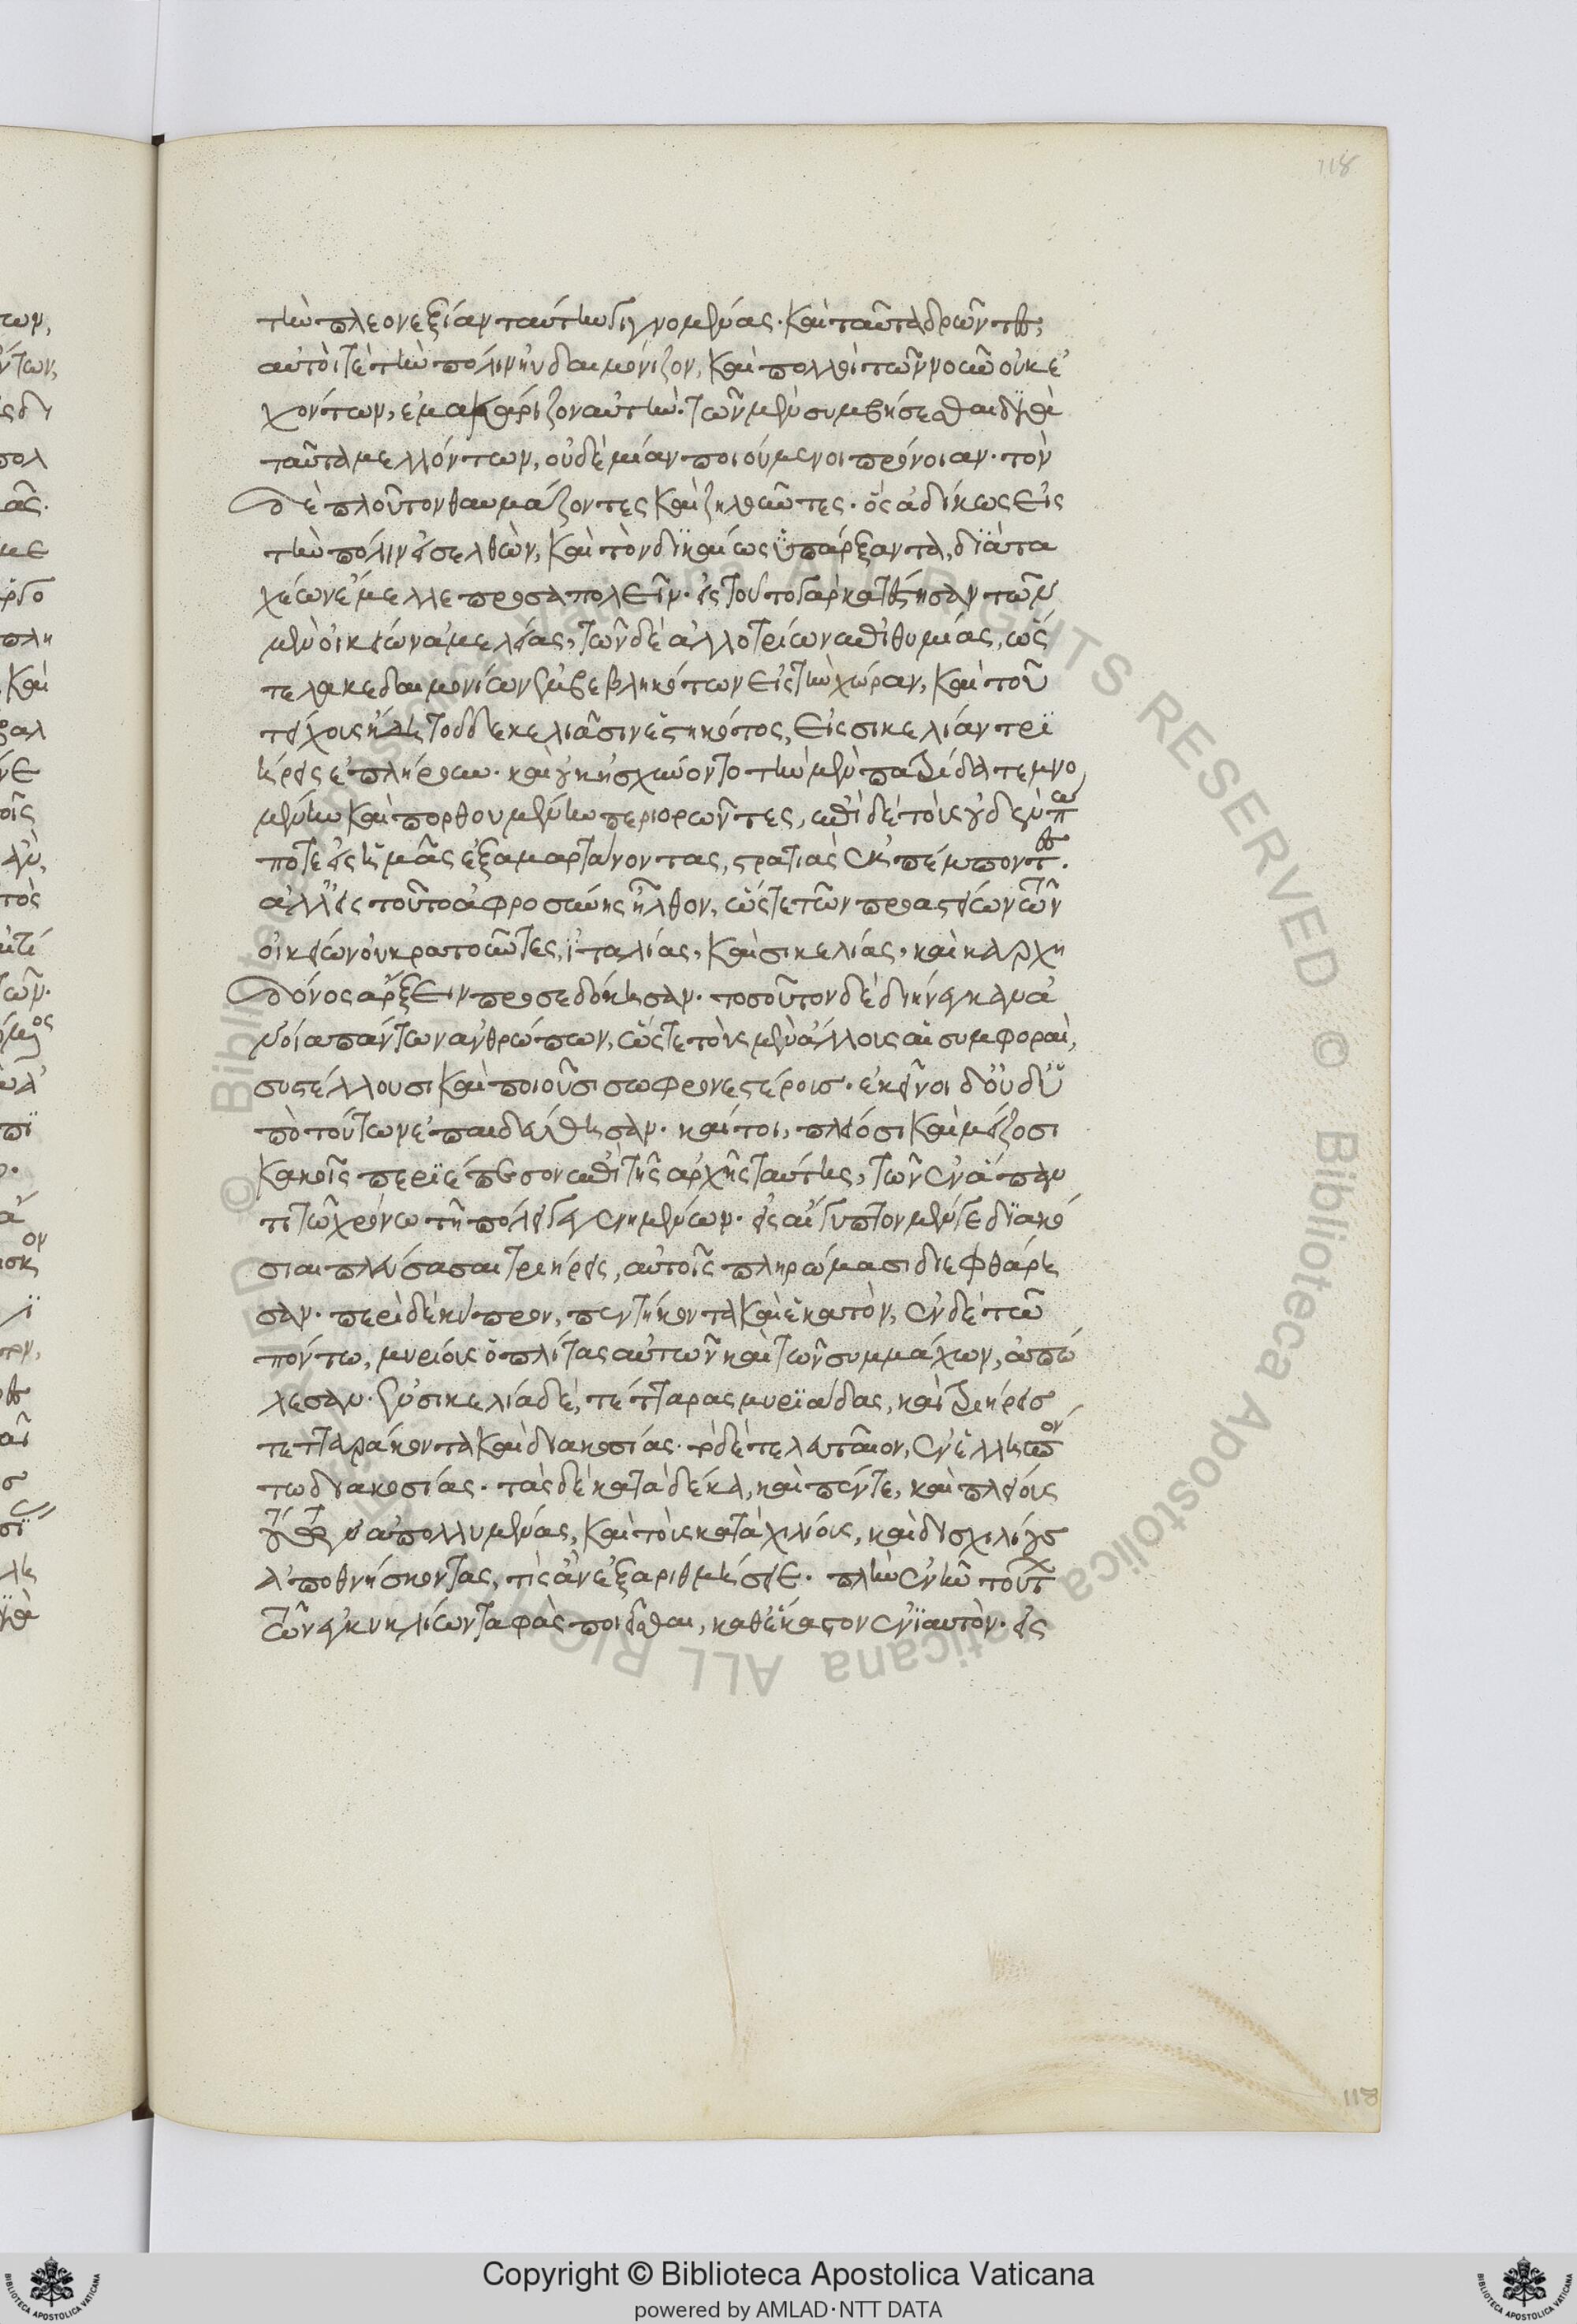 τὴν πλεονεξίαν ταύτην γιγνομένας· καὶ ταῦτα δρῶντες,
αὐτοί τε τὴν πόλιν ηὐδαιμόνιζον, καὶ πολλοὶ τῶν νοῦν οὐκ ἐ
χόντων, ἐμακάριζον αὐτήν· τῶν μὲν συμβήσεσθαι διὰ
ταῦτα μελλόντων, οὐδὲ μίαν ποιούμενοι πρόνοιαν· τὸν
δὲ πλοῦτον θαυμάζοντες καὶ ζηλοῦντες· ὃς ἀδίκως εἰς
τὴν πόλιν εἰσελθὼν, καὶ τὸν δϊκαίως ὑπάρξαντα, δϊὰ τα
χέων ἔμελλε προσαπολεῖν· εἰς τοῦτο γὰρ κατέστησαν τῶν
μὲν οἰκείων ἀμελείας, τῶν δὲ ἀλλοτρίων ἐπιθυμίας, ὥς
τε λακεδαιμονίων ἐμβεβληκότων εἰς τὴν χώραν, καὶ τοῦ
τείχους ἤδη τοῦ δεκελιᾶσιν ἑστηκότος, εἰς σικελίαν τρϊ
ήρεις ἐπλήρουν· καὶ οὐκ ἠσχύνοντο τὴν μὲν πατρίδα τεμνο
μένην καὶ πορθουμένην περιορῶντες, ἐπὶ δὲ τοὺς οὐδὲν πώ
ποτε εἰς ἡμᾶς ἐξαμαρτάνοντας, στρατιὰς ἐκπέμποντες.
ἀλλ' εἰς τοῦτο ἀφροσύνης ἦλθον, ὥστε τῶν προαστείων τῶν
οἰκείων οὐ κρατοῦντες, ἰταλίας, καὶ σικελίας, καὶ καρχη
δόνος ἄρξειν προσεδόκησαν· τοσοῦτον δὲ διήνεγκαν ἀ
νοία πάντων ἀνθρώπων, ὥστε τοὺς μὲν ἄλλους αἱ συμφοραὶ,
συστέλλουσι καὶ ποιοῦσι σωφρονεστέρους· ἐκεῖνοι δ' οὐδ' ὑ
πὸ τούτων ἐπαιδεύθησαν· καίτοι, πλείοσι καὶ μείζοσι
κακοῖς περϊέπεσον ἐπὶ τῆς ἀρχῆς ταύτης, τῶν ἐν ἅπαν
τι τῶ χρόνω τῆ πόλει γεγενημένων· εἰς αἴγυπτον μέν γε δϊακό
σιαι πλεύσασαι τριήρεις, αὐτοῖς πληρώμασι διεφθάρη
σαν· περὶ δὲ κύπρον, πεντήκοντα καὶ ἑκατὸν, ἐν δὲ τῶ
πόντω, μυρίους ὁπλίτας αὐτῶν καὶ τῶν συμμάχων, ἀπώ
λεσαν· ἐν σικελία δὲ, τέτταρας μυρϊάδας, καὶ τριήρεις
τετταράκοντα καὶ διακοσίας· τὸ δὲ τελευταῖον, ἐν ἑλλησπόν
τω διακοσίας· τὰς δὲ κατὰ δέκα, καὶ πέντε, καὶ πλείους
τούτων ἀπολλυμένας, καὶ τοὺς κατὰ χιλίους, καὶ δισχιλίους
ἀποθνήσκοντας, τίς ἂν ἐξαριθμήσειε· πλὴν ἓν ἦν τοῦτο
τῶν ἐγκυκλίων ταφὰς ποιεῖσθαι, καθ' ἕκαστον ἐνϊαυτὸν· εἰς
118
118
Copyright © Biblioteca Apostolica Vaticana
powered by AMLAD·NTT DATA